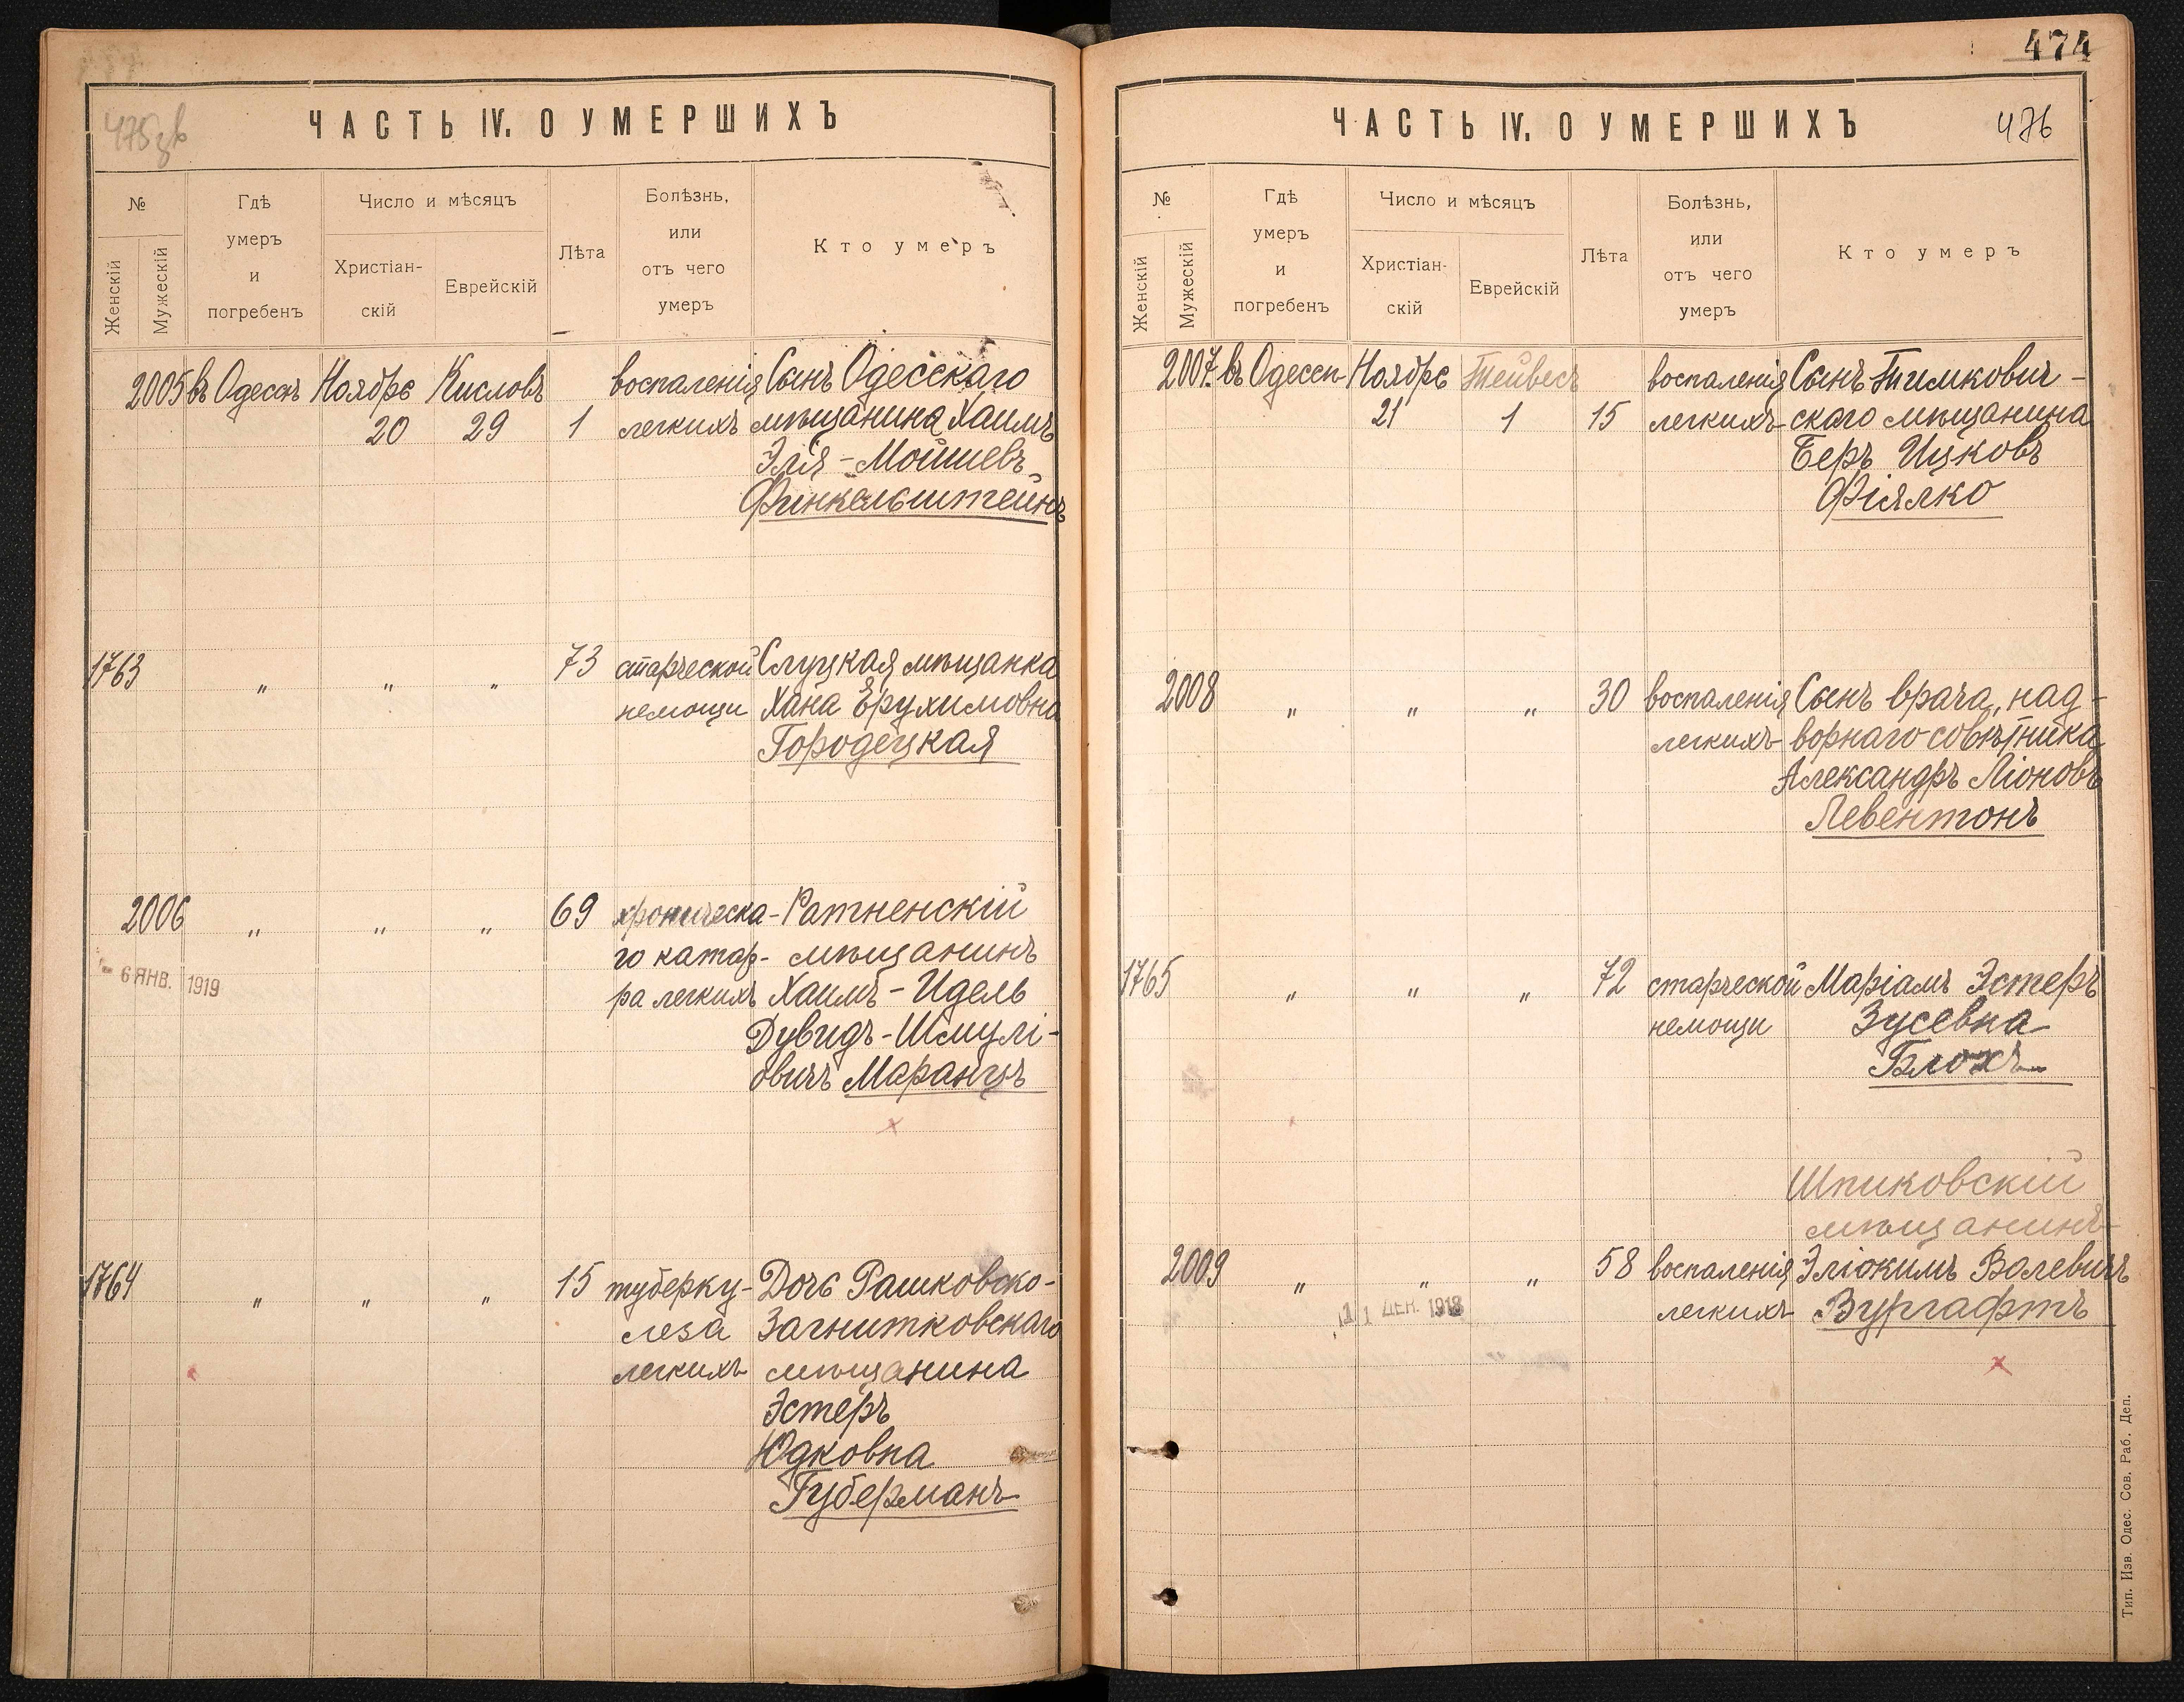 474
475зв
ЧАСТЬ IV. О УМЕРШИХЪ
№
Женскій
Мужескій
Гдѣ
умеръ
и
погребенъ
Число и мѣсяцъ
Христіан-
скій
Еврейскій
Лѣта
Болѣзнь,
или
отъ чего
умеръ
Кто умеръ
2005 въ Одессѣ Ноября Кисловъ воспаленія Сынъ Одесскаго
20 29 1 легкихъ мѣщанина Хаимъ
Элія-Мойшевъ
Финкельштейнъ
1763 " " " 73 старческой Слуцкая мѣщанка
немощи Хана Ерухимовна
Городецкая
2006 " " " 69 хроническа- Ратненскій
го катар- мѣщанинъ
6 ЯНВ. 1919
ра легкихъ Хаимъ-Идель
Дувидъ-Шмулі-
овичъ Маранцъ
1764 " " " 15 туберку- Дочь Рашковско-
леза Загнитковскаго
легкихъ мѣщанина
Эстеръ
Юдковна
Губерманъ
ЧАСТЬ IV. О УМЕРШИХЪ
476
№
Женскій
Мужескій
Гдѣ
умеръ
и
погребенъ
Число и мѣсяцъ
Христіан-
скій
Еврейскій
Лѣта
Болѣзнь,
или
отъ чего
умеръ
Кто умеръ
2007. въ Одессѣ Ноября Тейвесъ воспаленія Сынъ Тимкович-
21 1 15 легкихъ скаго мѣщанина
Беръ Ицковъ
Фіялко
2008 " " " 30 воспаленія Сынъ врача, над-
легкихъ ворнаго совѣтника
Александръ Ліоновъ
Левентонъ
1765 " " " 72 старческой Маріамъ Эстеръ
немощи Зусевна
Блохъ
Шпиковскій
мѣщанинъ
2009 " " " 58 воспаленія Эліокимъ Волевичъ
11 ДЕК. 1918
легкихъ Вургафтъ
Тип. Изв. Одес. Сов. Раб. Деп.